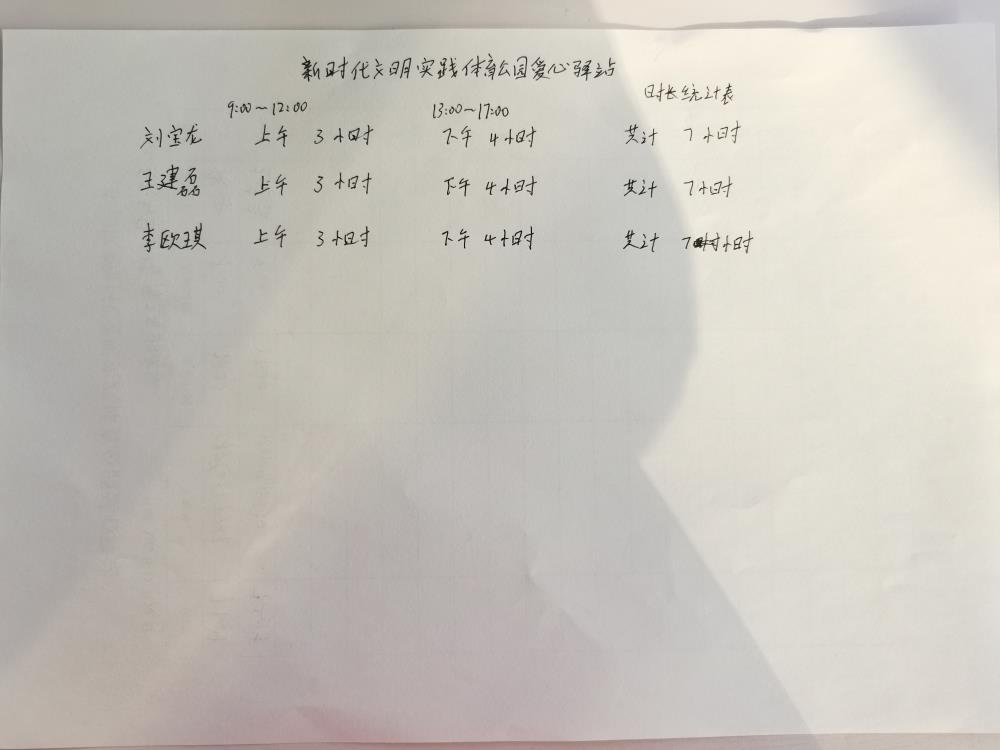 新时代文明实践体育公园爱心驿站
时长统计表
9:00~12:00 13:00~17:00
刘宝龙 上午 3小时 下午 4小时 共计 7小时
王建磊 上午 3小时 下午 4小时 共计 7小时
李欧琪 上午 3小时 下午 4小时 共计 7小时